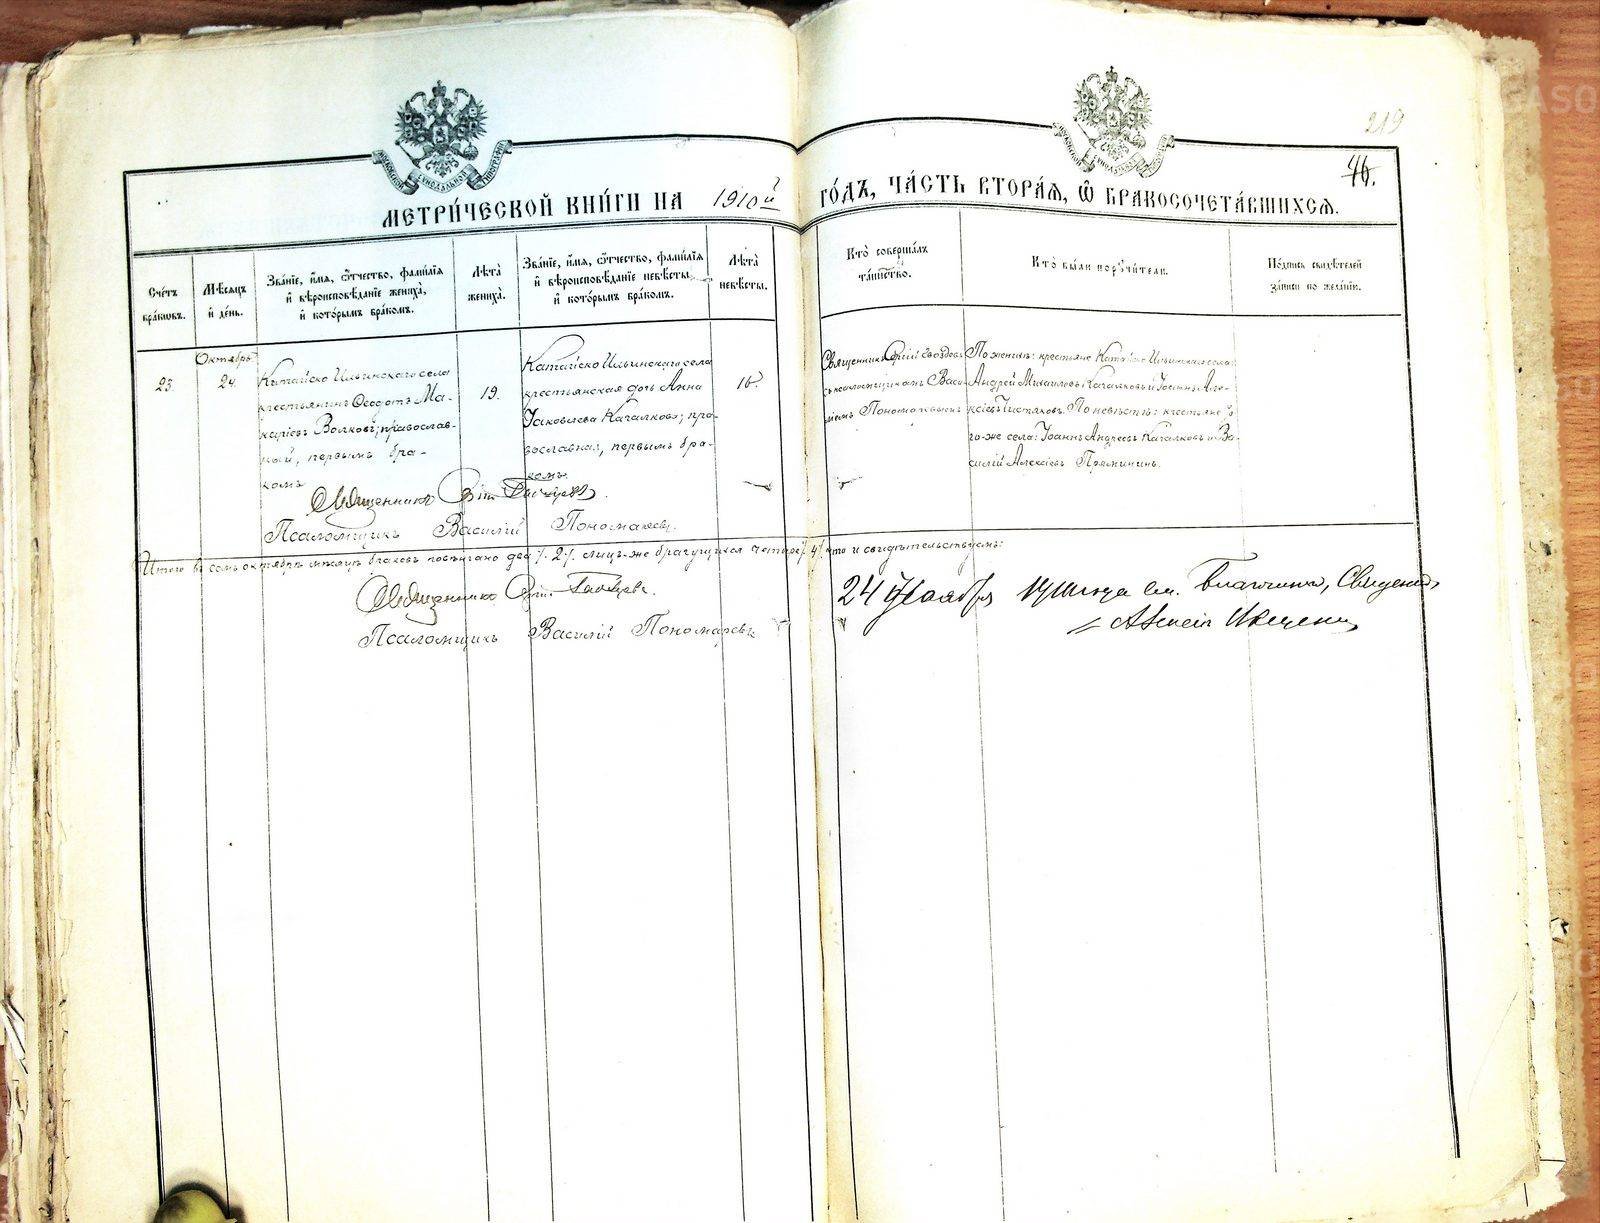 219
46.
МОСКОВСКОЙ СУНОДАЛЬНОЙ ТИПОГРАФІИ
МЕТРИ́ЧЕСКОЙ КНИ́ГИ НА 1910й ГО́ДЪ, ЧА́СТЬ ВТОРА́Я, Ѽ БРАКОСОЧЕТА́ВШИХСЯ.
Сче́тъ бра́кѡвъ.
Мѣ́сѧцъ и҆ де́нь.
Зва́нїе, и҆́мѧ, ѻ҆́тчество, фами́лїѧ и҆ вѣроисповѣ́данїе жениха̀, и҆ кото́рымъ бра́комъ.
Лѣ́та жениха̀.
Зва́нїе, и҆́мѧ, ѻ҆́тчество, фами́лїѧ и҆ вѣроисповѣ́данїе невѣ́сты, и҆ кото́рымъ бра́комъ.
Лѣ́та невѣ́сты.
Кто̀ соверша́лъ та́инство.
Кто̀ бы́ли порꙋчи́тели.
По́дпись свидѣ́телей за́писи по жела́нїю.
23.
Октябрь
24.
Катайско Ильинскаго села
крестьянинъ Ѳеодотъ Ма-
каріевъ Волковъ; православ-
ный, первымъ бра-
комъ
19.
Катайско Ильинскаго села
крестьянская дочь Анна
Іаковлева Качалкова; пра-
вославная, первымъ бра-
комъ
16.
Священникъ Сергій
съ псаломщикомъ Васи-
ліемъ Пономаревымъ
По женихѣ: крестьяне Катайско Ильинскаго села:
Андрей Михаиловъ Качалковъ и Іоаннъ Але-
ксіевъ Чистяковъ. По невѣстѣ: крестьяне то-
го-же села: Іоаннъ Андреевъ Качалковъ и Ва-
силій Алексіевъ Пряминины.
Священникъ
Псаломщикъ Василій Пономаревъ.
Итого въ семъ октябрѣ мѣсяцѣ браковъ повѣнчано два /. 2 /. лицъ-же брачущихся четыре /. 4 /. что и свидѣтельствуемъ:
Священникъ
Псаломщикъ Василій Пономаревъ
24 Ноября 1910 года